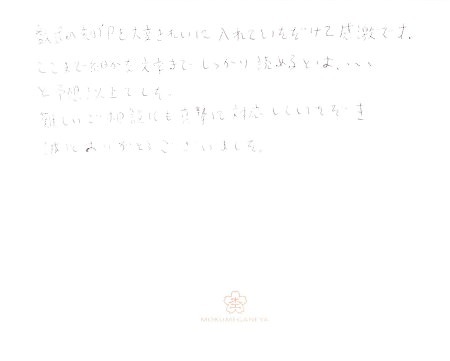 家風の刻印を大変きれいに入れていただけて感激です。
ここまで細かな文字までしっかり読めるとは、、、
と予想以上でした。
難しいご相談にも真摯に対応していただき
誠にありがとうございました。
MOKUME GANE YA